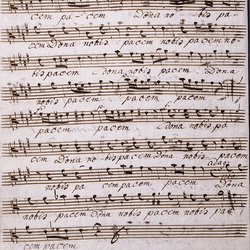 cem pa-cem Dona nobis pa-
cem Dona nobis pacem no
bis pacem Dona nobis pacem Dona
nobis pacem pacem
pacem pacem Dona nobis pa
cem Dona nobis pacem Dona nobis
nobis pa cem pacem pacem Dona
nobis pacem Dona nobis pacem nobis pa
cem pacem